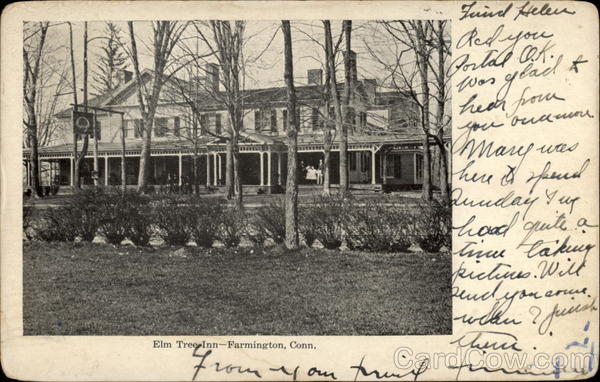 Friend Helen
Red you
Postal O.K.
was glad to
hear from
you once more
Mary was
here to spend
Sunday I've
had quite a
time taking
pictures. Will
send you some
when I finish
them.
Elm Tree Inn—Farmington, Conn.
From your friend
CardCow.com